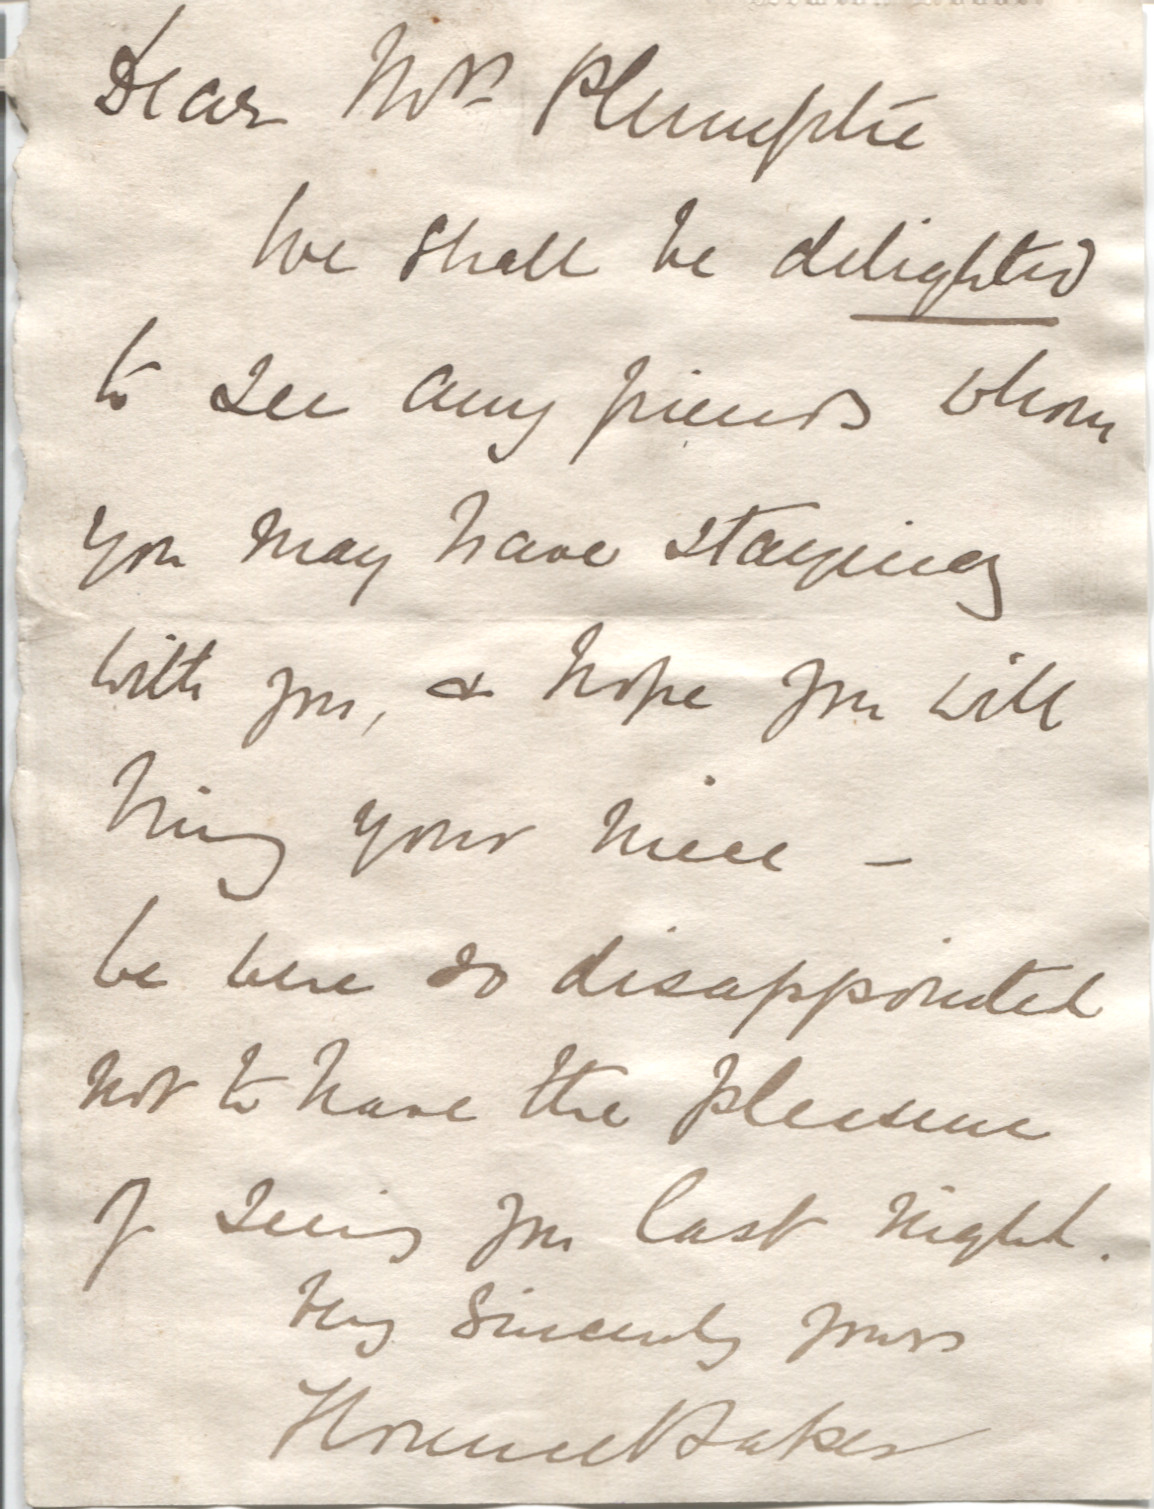 Dear Mrs Plumptre
We shall be delighted
to see any friends whom
you may have staying
with you, & hope you will
bring your niece –
We were so disappointed
not to have the pleasure
of seeing you last night.
Very Sincerely yours
Florence Baker